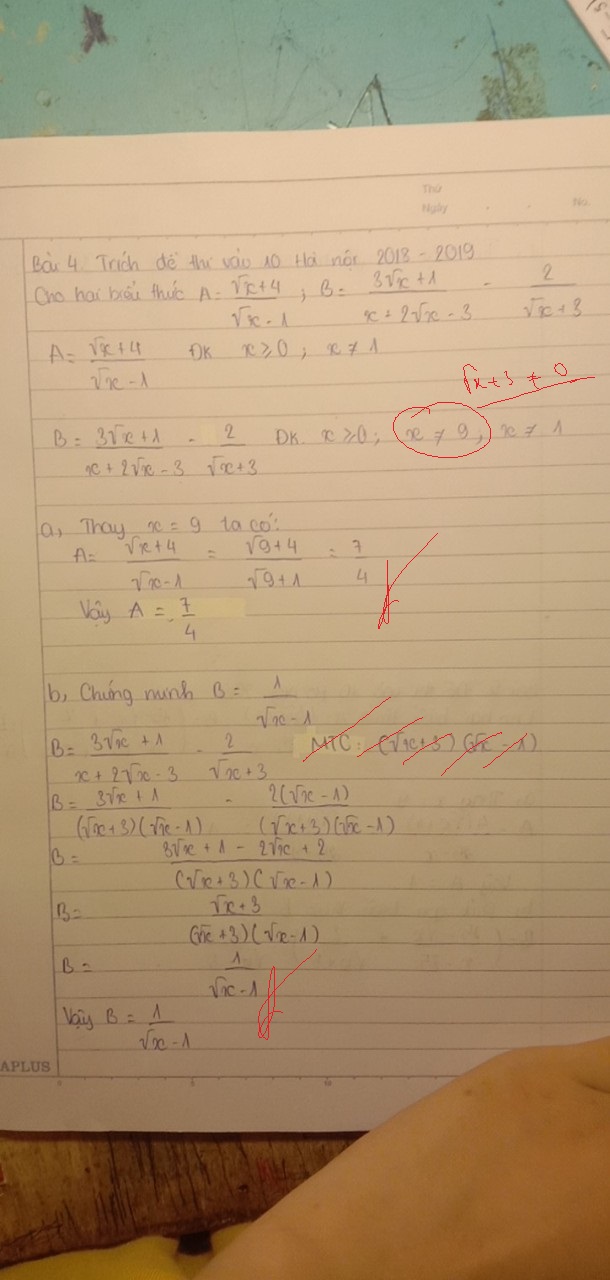 Thứ
Ngày . . No.
Bài 4 Trích đề thi vào 10 Hà nội 2018 - 2019
Cho hai biểu thức A = (√x+4)/(√x-1) ; B = (3√x+1)/(x+2√x-3) - 2/(√x+3)
A = (√x+4)/(√x-1) ĐK x ≥ 0 ; x ≠ 1
√x+3 ≠ 0
B = (3√x+1)/(x+2√x-3) - 2/(√x+3) ĐK. x ≥ 0 ; x ≠ 9, x ≠ 1
a, Thay x = 9 ta có:
A = (√x+4)/(√x-1) = (√9+4)/(√9+1) = 7/4
Vậy A = 7/4
b, Chứng minh B = 1/(√x-1)
B = (3√x+1)/(x+2√x-3) - 2/(√x+3) MTC: (√x+3)(√x-1)
B = (3√x+1)/((√x+3)(√x-1)) - 2(√x-1)/((√x+3)(√x-1))
B = (3√x+1-2√x+2)/((√x+3)(√x-1))
B = (√x+3)/((√x+3)(√x-1))
B = 1/(√x-1)
Vậy B = 1/(√x-1)
APLUS